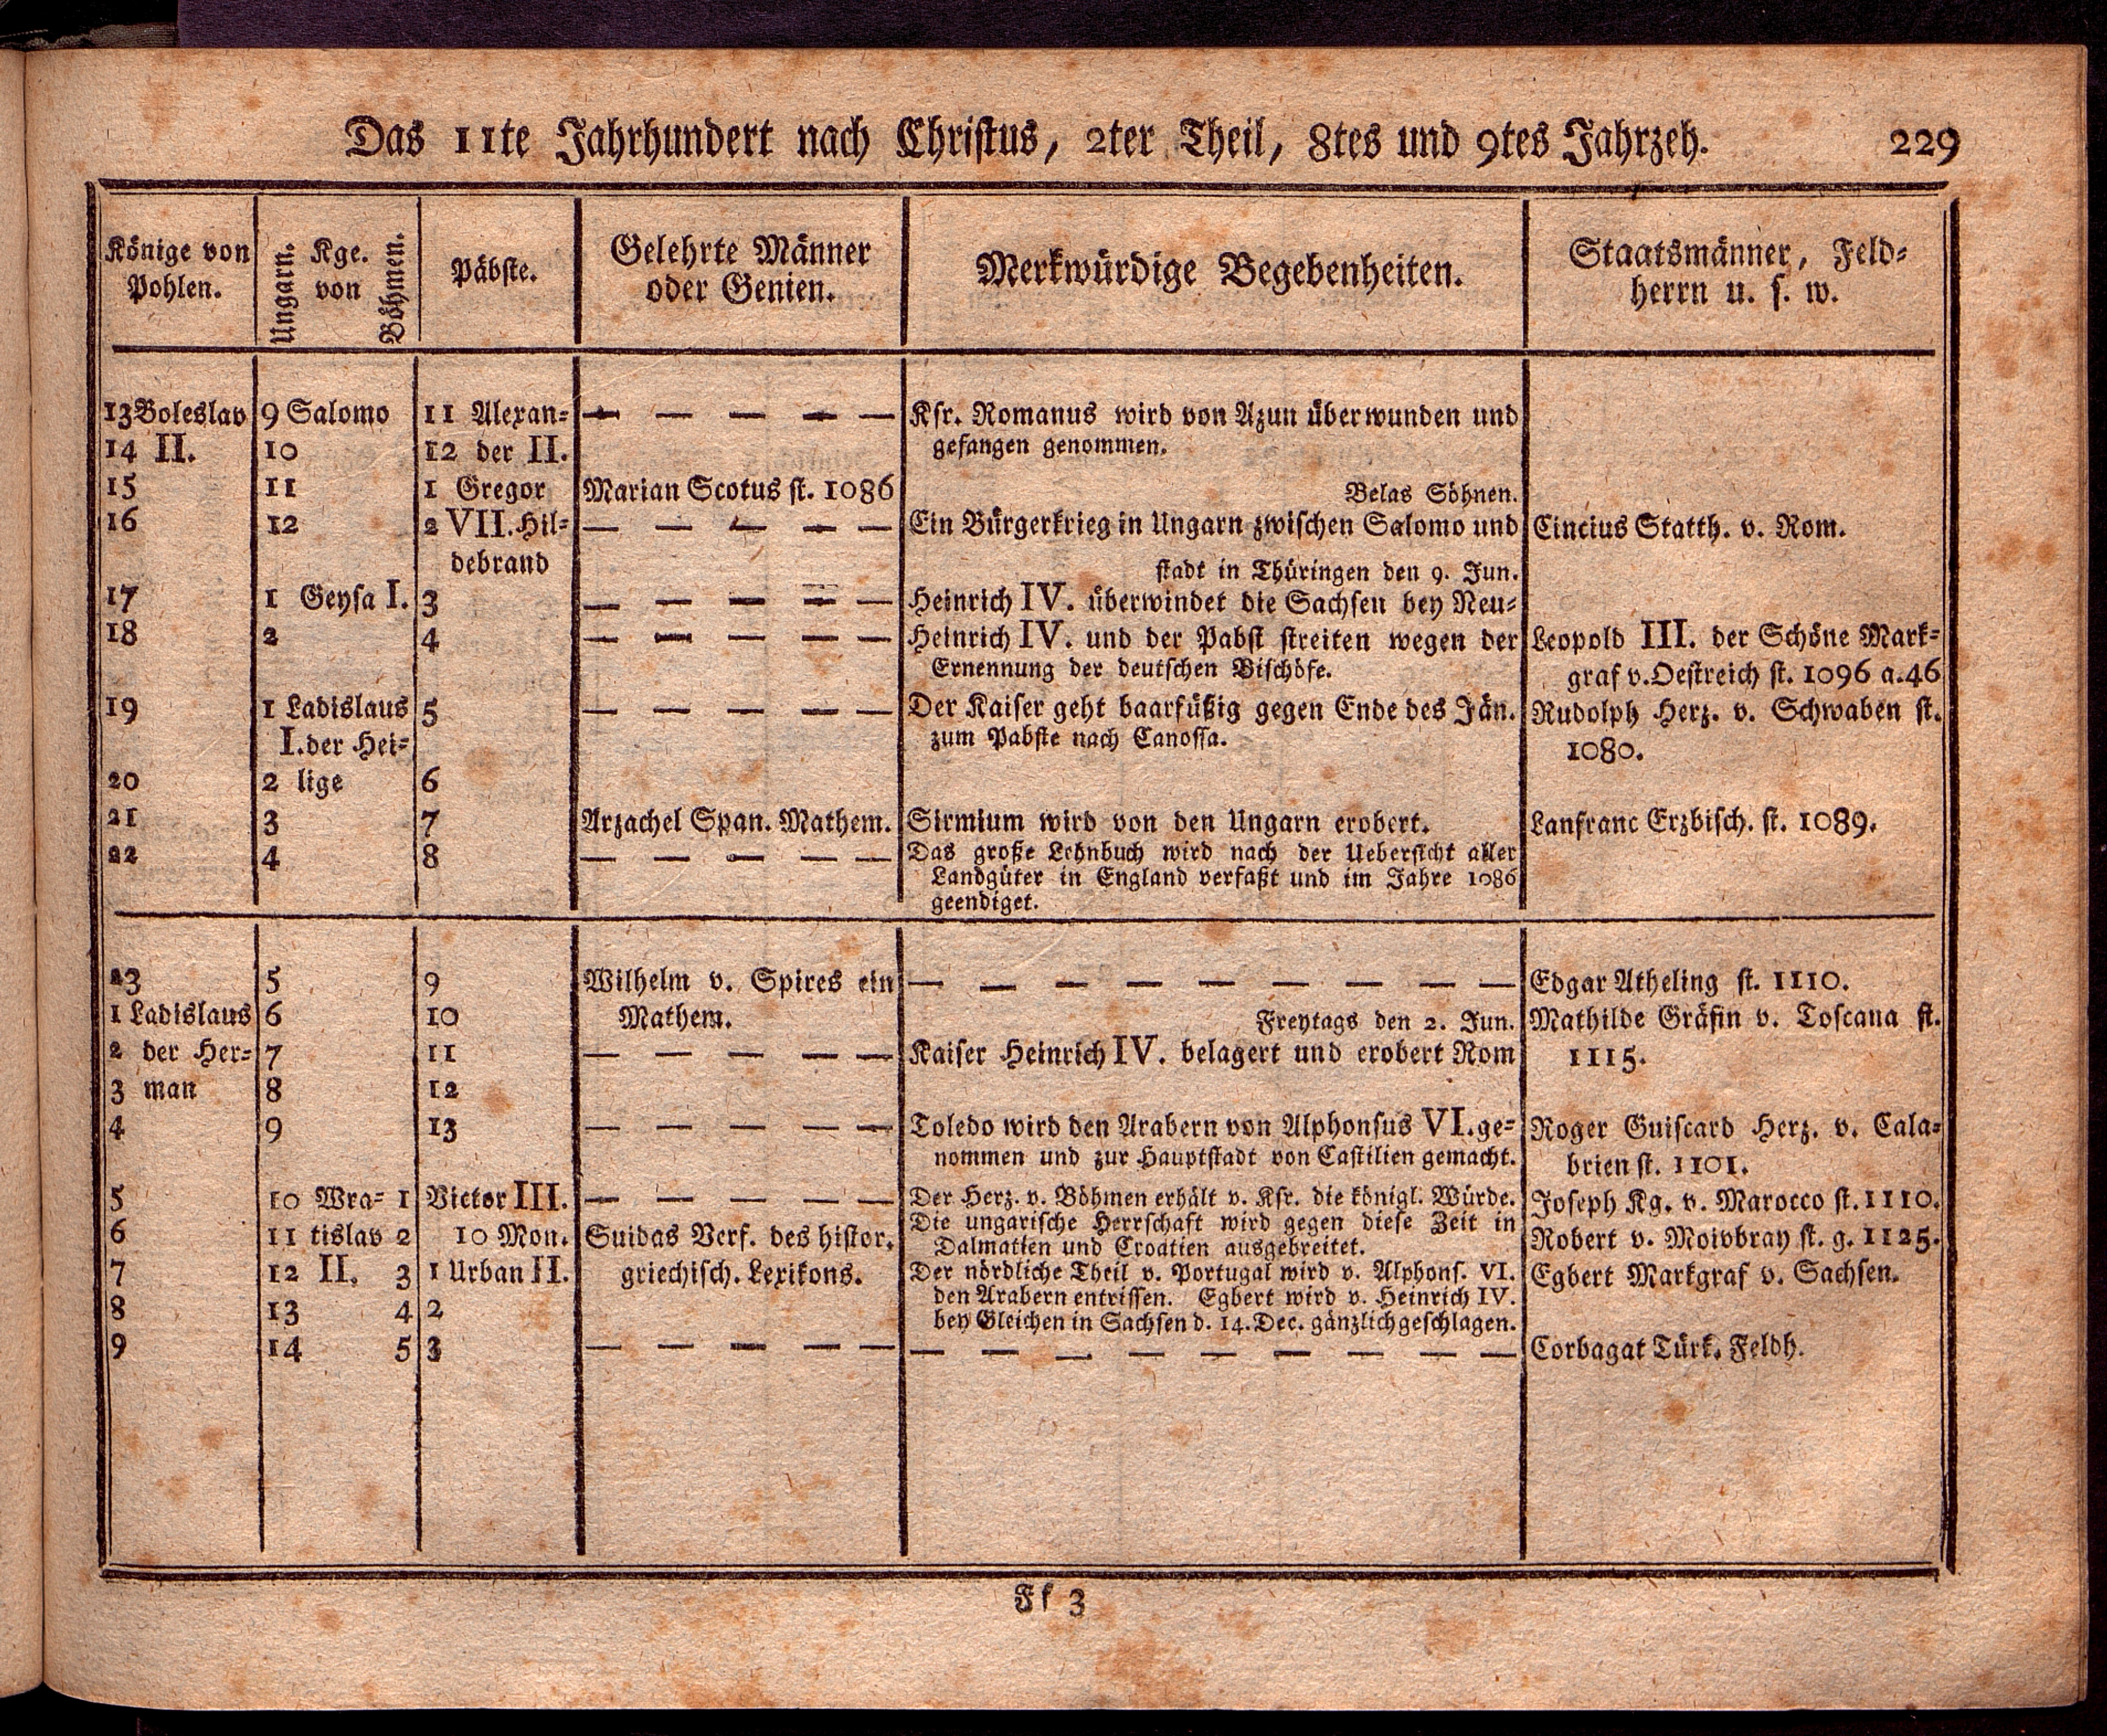 Das 11te Jahrhundert nach Christus, 2ter Theil, 8tes und 9tes Jahrzeh. 229
Könige von Pohlen.
Ungarn.
Kge. von
Böhmen.
Päbste.
Gelehrte Männer oder Genien.
Merkwürdige Begebenheiten.
Staatsmänner, Feld-
herrn u. s. w.
13 Boleslav 9 Salomo 11 Alexan- — — — — — Ksr. Romanus wird von Azun überwunden und
14 II. 10 12 der II. gefangen genommen.
15 11 1 Gregor Marian Scotus st. 1086 Belas Söhnen.
16 12 2 VII. Hil- — — — — — Ein Bürgerkrieg in Ungarn zwischen Salomo und Cincius Statth. v. Rom.
debrand stadt in Thüringen den 9. Jun.
17 1 Geysa I. 3 — — — — — Heinrich IV. überwindet die Sachsen bey Neu-
18 2 4 — — — — — Heinrich IV. und der Pabst streiten wegen der Leopold III. der Schöne Mark-
Ernennung der deutschen Bischöfe. graf v. Oestreich st. 1096 a. 46
19 1 Ladislaus 5 — — — — — Der Kaiser geht baarfüßig gegen Ende des Jän. Rudolph Herz. v. Schwaben st.
I. der Hei- zum Pabste nach Canossa. 1080.
20 2 lige 6
21 3 7 Arzachel Span. Mathem. Sirmium wird von den Ungarn erobert. Lanfranc Erzbisch. st. 1089.
22 4 8 — — — — — Das große Lehnbuch wird nach der Uebersicht aller
Landgüter in England verfaßt und im Jahre 1086
geendiget.
23 5 9 Wilhelm v. Spires ein — — — — — — — — — Edgar Atheling st. 1110.
1 Ladislaus 6 10 Mathem. Freytags den 2. Jun. Mathilde Gräfin v. Toscana st.
2 der Her- 7 11 — — — — — Kaiser Heinrich IV. belagert und erobert Rom 1115.
3 man 8 12
4 9 13 — — — — — Toledo wird den Arabern von Alphonsus VI. ge- Roger Guiscard Herz. v. Cala-
nommen und zur Hauptstadt von Castilien gemacht. brien st. 1101.
5 10 Wra- 1 Victor III. — — — — — Der Herz. v. Böhmen erhält v. Ksr. die königl. Würde. Joseph Kg. v. Marocco st. 1110.
6 11 tislav 2 10 Mon. Suidas Verf. des histor. Die ungarische Herrschaft wird gegen diese Zeit in Robert v. Moivbray st. g. 1125.
Dalmatien und Croatien ausgebreitet.
7 12 II. 3 1 Urban II. griechisch. Lexikons. Der nördliche Theil v. Portugal wird v. Alphons. VI. Egbert Markgraf v. Sachsen.
8 13 4 2 den Arabern entrissen. Egbert wird v. Heinrich IV.
bey Gleichen in Sachsen d. 14. Dec. gänzlich geschlagen.
9 14 5 3 — — — — — — — — — — — — — — Corbagat Türk. Feldh.
Ff 3